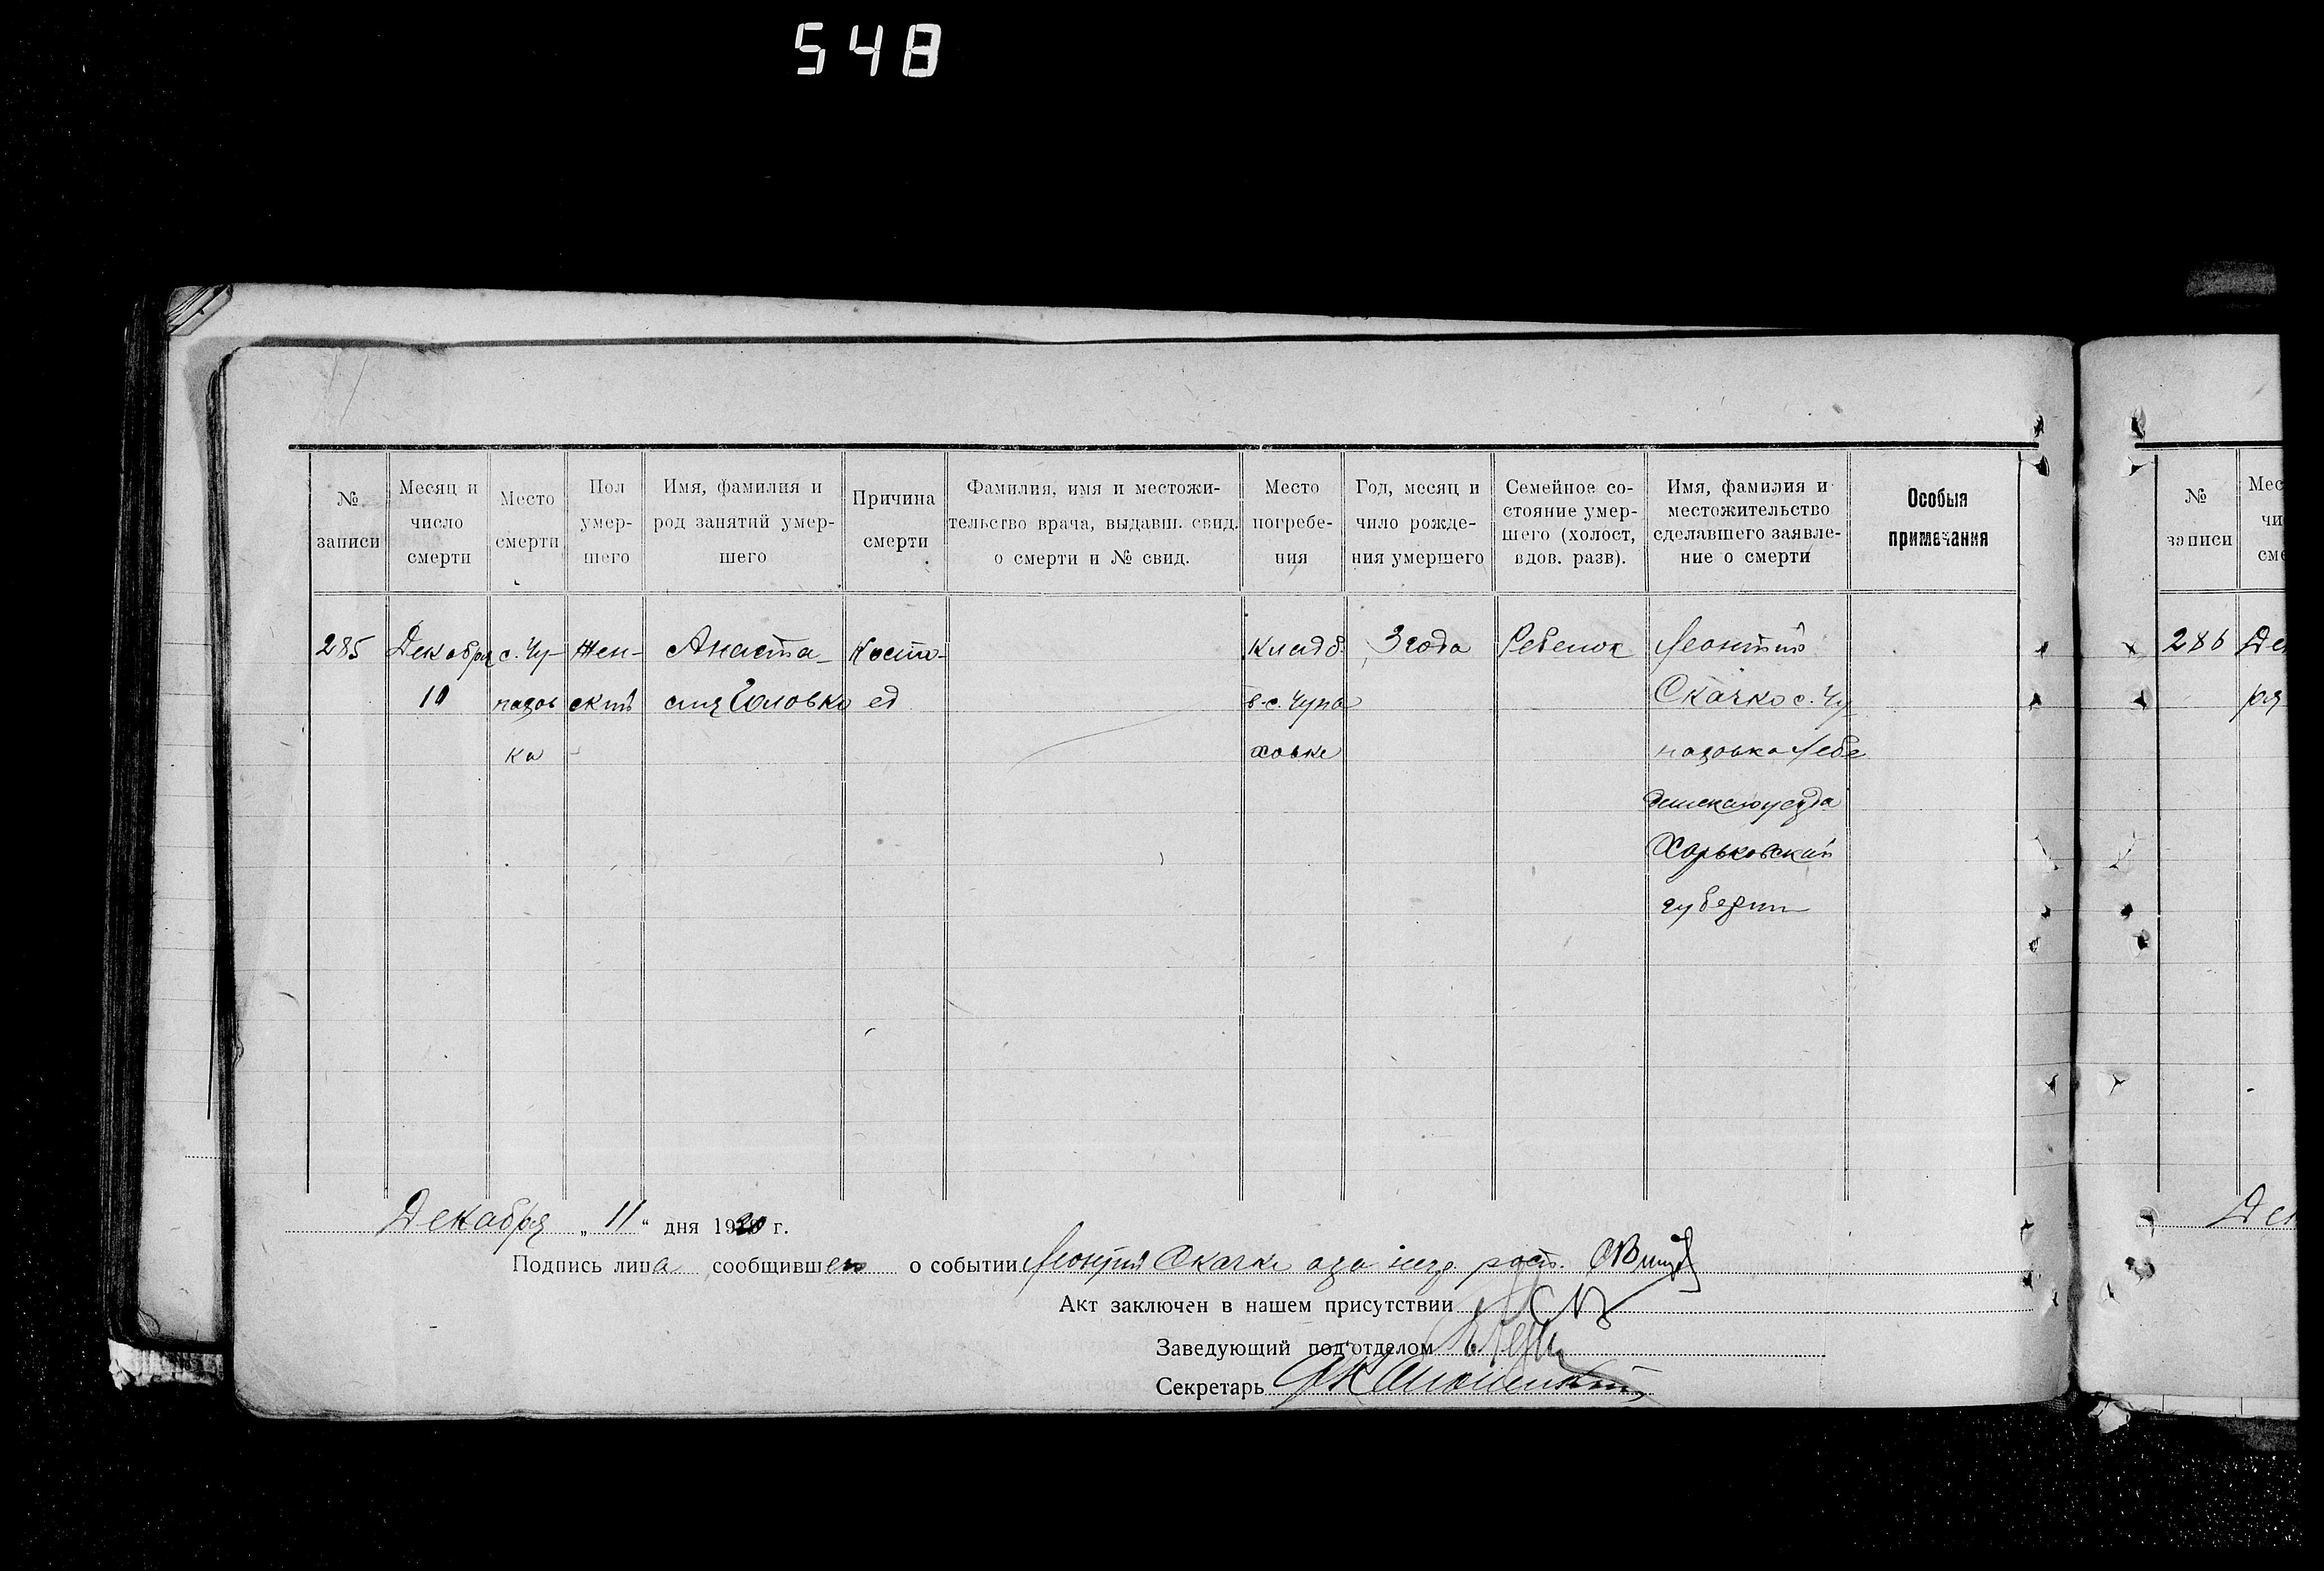 548
№ записи
Месяц и число смерти
Место смерти
Пол умер-шего
Имя, фамилия и род занятий умер-шего
Причина смерти
Фамилия, имя и местожи-тельство врача, выдавш. свид. о смерти и № свид.
Место погребе-ния
Год, месяц и чило рожде-ния умершего
Семейное со-стояние умер-шего (холост, вдов. разв).
Имя, фамилия и местожительство сделавшего заявле-ние о смерти
Особыя примечания
285
Декабря
10
с. Чу-
пахов
ка
Жен-
скій
Анаста-
сия Головко
Косто-
ед
Кладб.
в с. Чупа
ховке
3 года
Ребенок
Леонтий
Скачко с. Чу
паховка Лебе
динскаго уезда
Харьковской
губернии
Декабря „ 11 “ дня 1920 г.
Подпись лица сообщившего о событии Леонтий Скачко
Акт заключен в нашем присутствии
Заведующий под'отделом
Секретарь
№ записи
Мес
чи
сме
286
Де
ря
Де